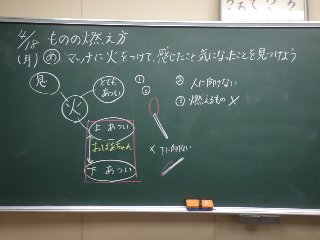 4/18 ものの燃え方
(月) め マッチに火をつけて、感じたこと気になったことを見つけよう
とても
あつい
火
上 あつい
下 あつい
①
②
② 人に向けない
③ 燃えるもの ×
× 下に向けない